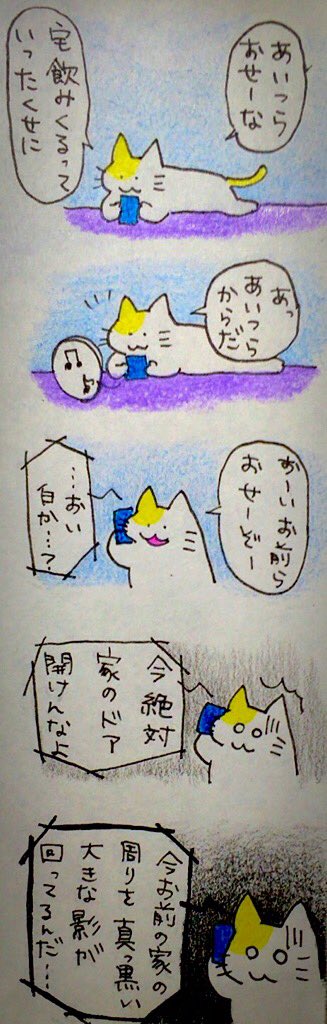 あいつら
おせーな
宅飲みくるって
いったくせに
あっ
あいつら
からだ
おーいお前ら
おせーぞー
…おい
白か…?
今絶対
家のドア
開けんなよ
今お前の家の
周りを真っ黒い
大きな影が
回ってるんだ…